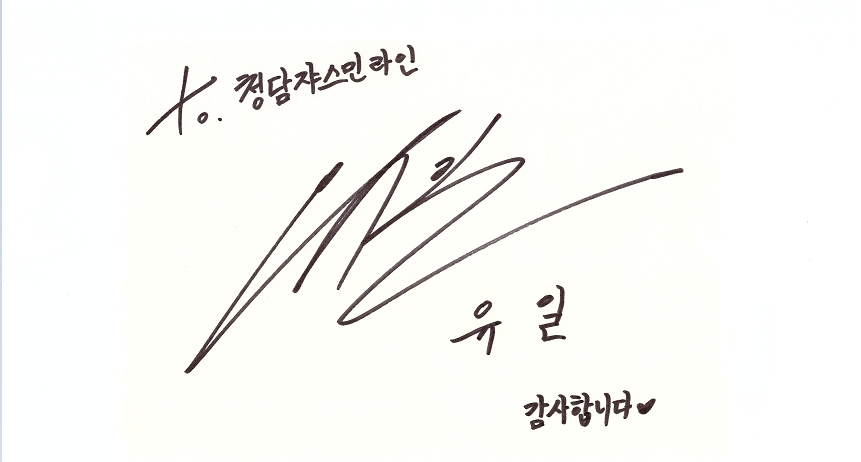 to. 청담쟈스민라인
유일
감사합니다♥